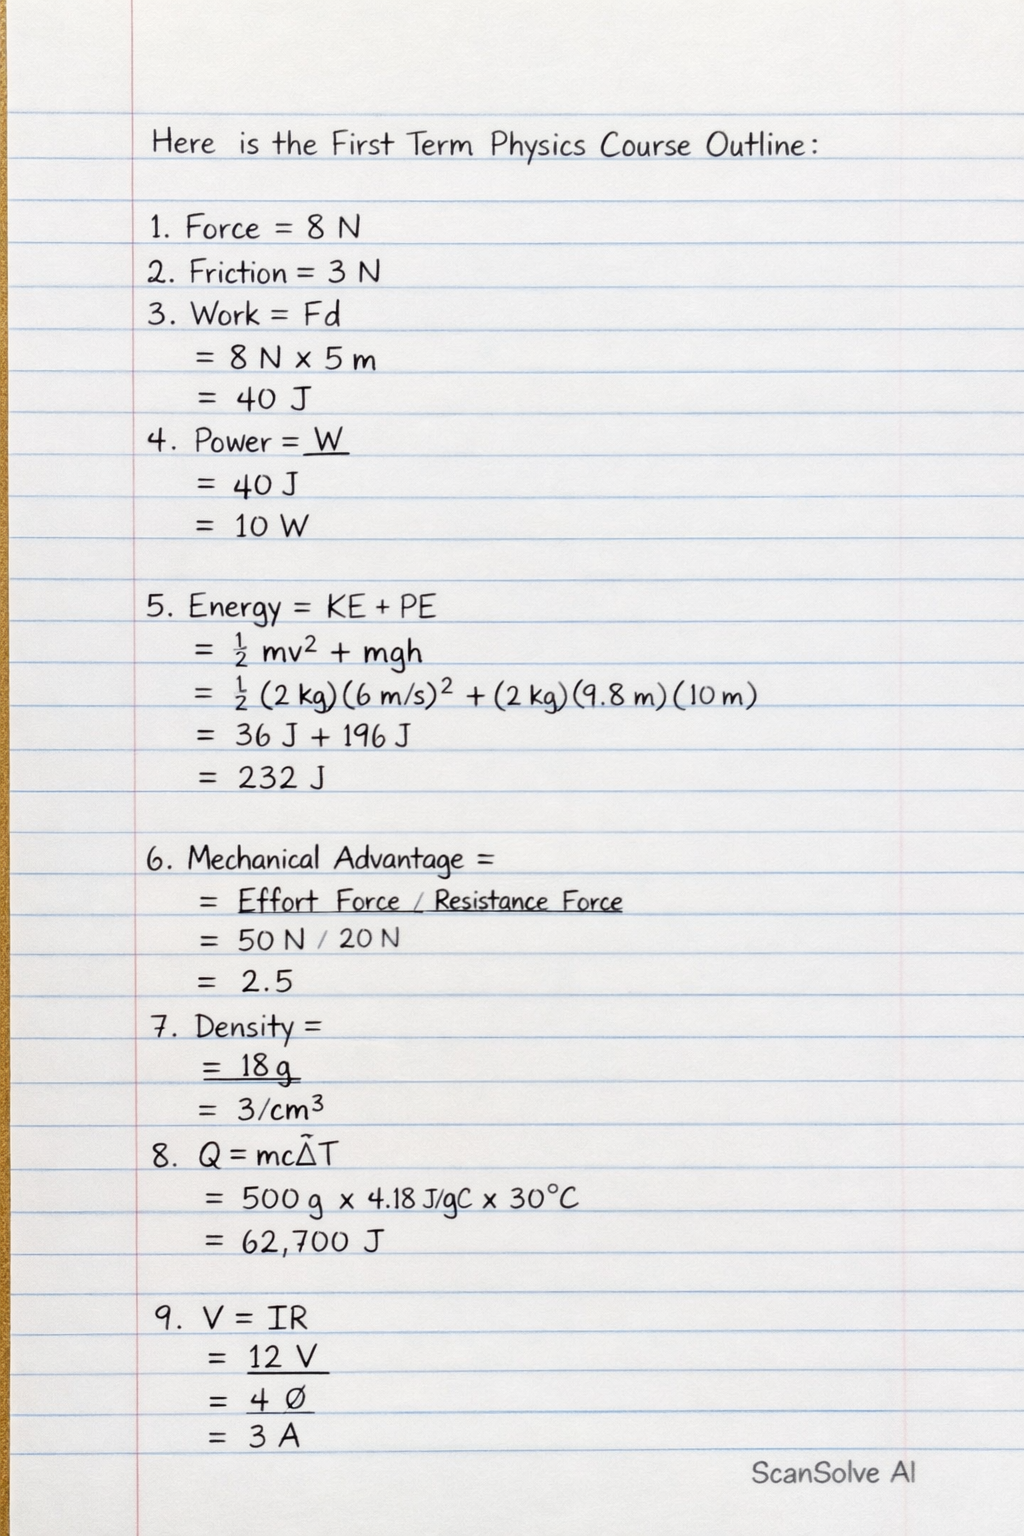 Here is the First Term Physics Course Outline:
1. Force = 8 N
2. Friction = 3 N
3. Work = Fd
= 8 N x 5 m
= 40 J
4. Power = W
= 40 J
= 10 W
5. Energy = KE + PE
= ½ mv² + mgh
= ½ (2 kg)(6 m/s)² + (2 kg)(9.8 m)(10 m)
= 36 J + 196 J
= 232 J
6. Mechanical Advantage =
= Effort Force / Resistance Force
= 50 N / 20 N
= 2.5
7. Density =
= 18 g
= 3/cm³
8. Q = mcΔ̃T
= 500 g x 4.18 J/gC x 30°C
= 62,700 J
9. V = IR
= 12 V
= 4 Ø
= 3 A
ScanSolve AI